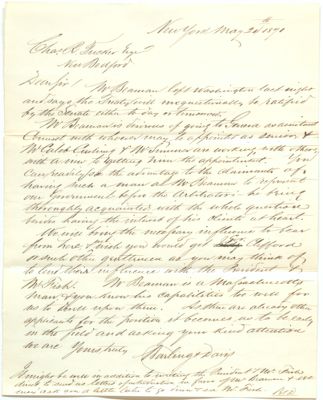 New York May 26th 1871
Chas R Tucker Esq
New Bedford
Dear Sir! Mr Beaman left Washington last night
and says the Treaty will unquestionably be ratified
by the Senate either to day or tomorrow.
Mr Beaman is desirous of going to Geneva as assistant
Counsel with whoever may be appointed as senior &
Mr Caleb Cushing & Mr Sumner are working with others
with a view to getting him the appointment. You
can readily see the advantage to the claimants of
having such a man as Mr Beaman to represent
our government before the Arbitrators he being
thoroughly acquainted with the whole question
besides having the interest of his clients at heart.
We will bring the necessary influence to bear
from here & wish you would get Mr Clifford
or such other gentlemen as you may think of
to lend their influence with the President &
Mr Fish. Mr Beaman is a Massachusetts
man & you know his capabilities too well for
us to dwell upon them. As there are already other
applicants for the position it becomes us to be early
in the field and asking your kind attention
we are Yours truly
It might be well in addition to writing the President & Mr Fish
direct to send us letters of in favor of Mr Beaman & we
may ask you a little later to go on & see Mr Fish.